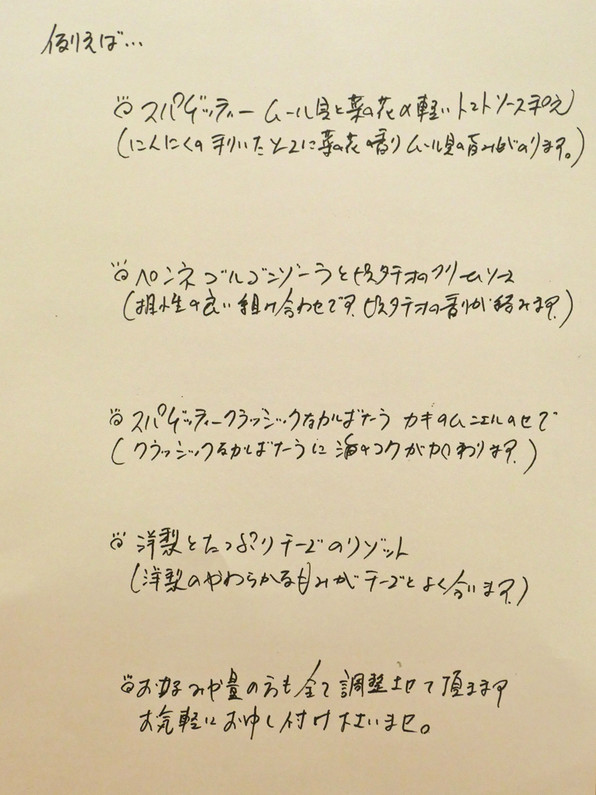 例えば…
スパゲッティー ムール貝と菜の花の軽いトマトソース和え
(にんにくの利いたソースに菜の花の香り ムール貝の旨みがのります。)
ペンネ ゴルゴンゾーラとピスタチオのクリームソース
(相性の良い組み合わせです。ピスタチオの香りが絡みます。)
スパゲッティークラッシックなかるぼなーら カキのムニエルのせて
(クラッシックなかるぼなーらに海のコクが加わります。)
洋梨とたっぷりチーズのリゾット
(洋梨のやわらかな甘みがチーズとよく合います。)
お好みや量の方も全て調整させて頂きます
お気軽にお申し付け下さいませ。